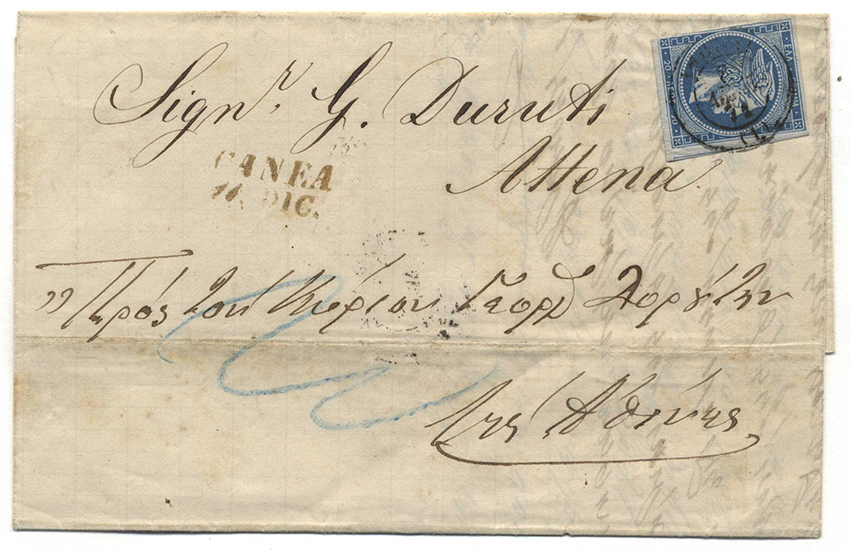 Signr. G. Duruti
Attena
CANEA
11. DIC.
„Πρός τον Κύριον Γεώργ Δορούτην
Εἰς Ἀθήνας
20
20
ΕΛΛ